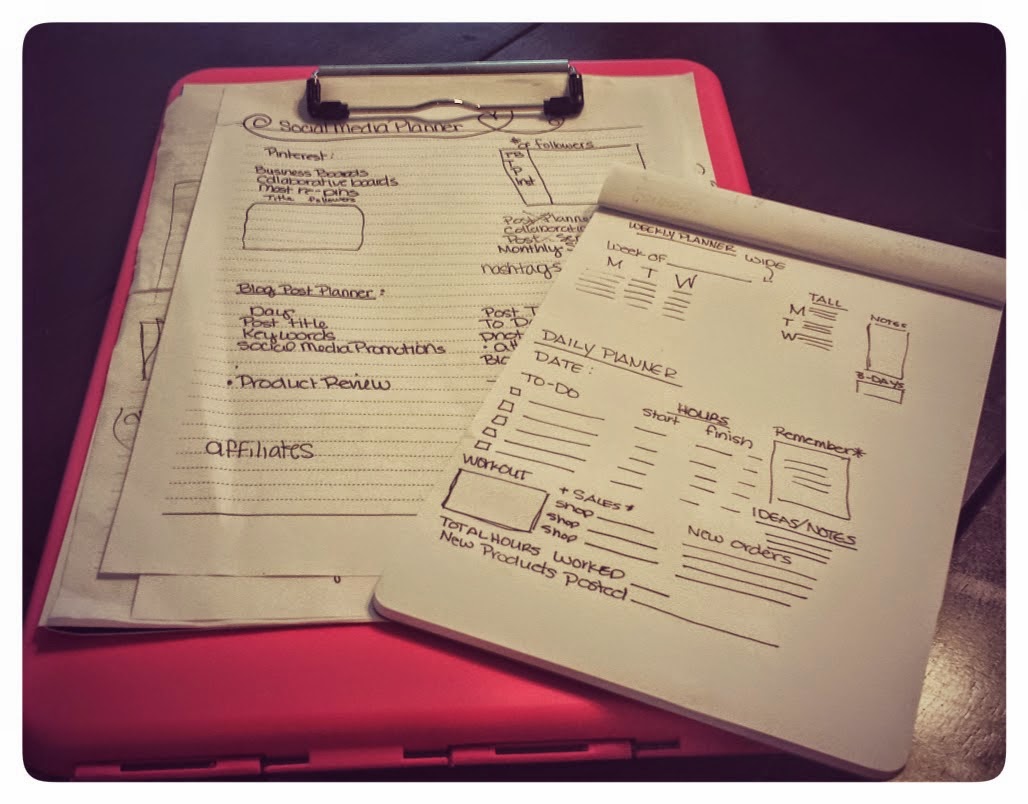 Social Media Planner
Pinterest:
Business Boards
Collaborative boards
Most re-pins
Title Followers
* of Followers
FB
T
P
Inst
Post Planne
Collaborati
Post
Monthly
hashtags
Blog Post Planner:
Day
Post Title
Keywords
Social Media Promotions
• Product Review
Post T
To D
affiliates
WEEKLY PLANNER
WIDE
Week of
M T W
TALL
M
T
W
NOTES
3-DAYS
DAILY PLANNER
DATE:
TO-DO
HOURS
start finish
Remember*
WORKOUT
* SALES *
shop
shop
shop
IDEAS/NOTES
New orders
TOTAL HOURS WORKED
New Products Posted